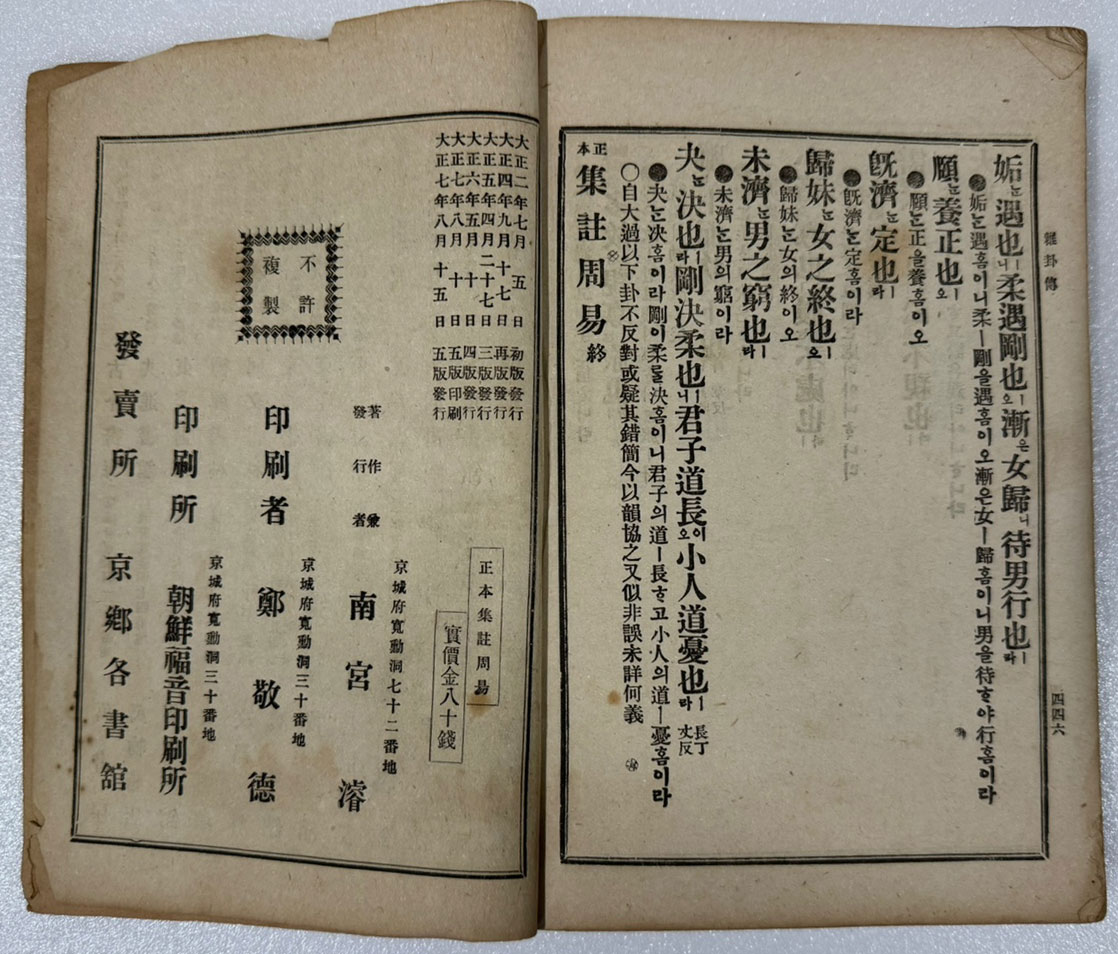 雜卦傳
四四六
姤ᄂᆞᆫ遇也ㅣ니柔遇剛也ㅣ오漸은女歸ㅣ니待男行也ㅣ라
●姤ᄂᆞᆫ遇홈이니柔ㅣ剛을遇홈이오漸은女ㅣ歸홈이니男을待ᄒᆞ야行홈이라
頤ᄂᆞᆫ養正也ㅣ오
●頤ᄂᆞᆫ正을養홈이오
旣濟ᄂᆞᆫ定也ㅣ라
●旣濟ᄂᆞᆫ定홈이라
歸妹ᄂᆞᆫ女之終也ㅣ오
●歸妹ᄂᆞᆫ女의終이오
未濟ᄂᆞᆫ男之窮也ㅣ라
●未濟ᄂᆞᆫ男의窮이라
夬ᄂᆞᆫ決也ㅣ라剛決柔也ㅣ니君子道長이오小人道憂也ㅣ라 長丁丈反
●夬ᄂᆞᆫ決홈이라剛이柔ᄅᆞᆯ決홈이니君子의道ㅣ長ᄒᆞ고小人의道ㅣ憂홈이라
○自大過以下卦不反對或疑其錯簡今以韻協之又似非誤未詳何義
正本集註周易終
大正二年七月五日初版發行
大正四年九月十七日再版發行
大正五年四月二十七日三版發行
大正六年五月十日四版發行
大正七年八月十日五版印刷
大正七年八月十五日五版發行
正本集註周易
實價金八十錢
不許
複製
京城府寬勳洞七十二番地
著作兼
發行者
南宮濬
京城府寬勳洞三十番地
印刷者 鄭敬德
京城府寬勳洞三十番地
印刷所 朝鮮福音印刷所
發賣所 京鄕各書舘